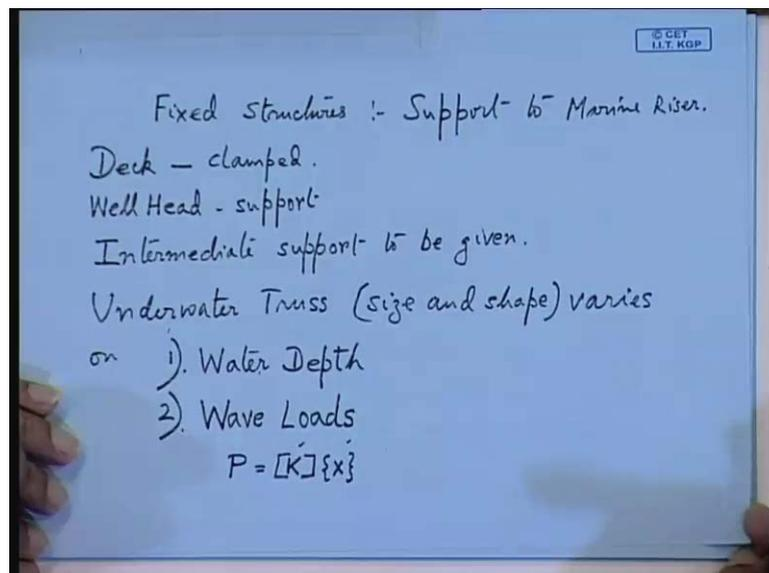 © CET
I.I.T. KGP
Fixed structures :- Support to Marine Riser.
Deck - clamped.
Well Head - support
Intermediate support to be given.
Underwater Truss (size and shape) varies
on 1). Water Depth
2). Wave Loads
P = [K]{x}